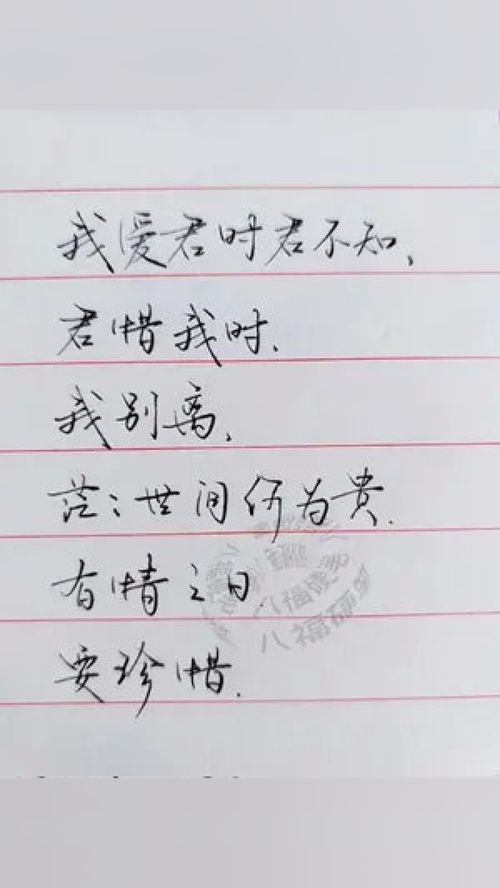 我爱君时君不知，
君惜我时，
我别离，
茫：世间何为贵，
有情之日，
要珍惜，
八福
八福